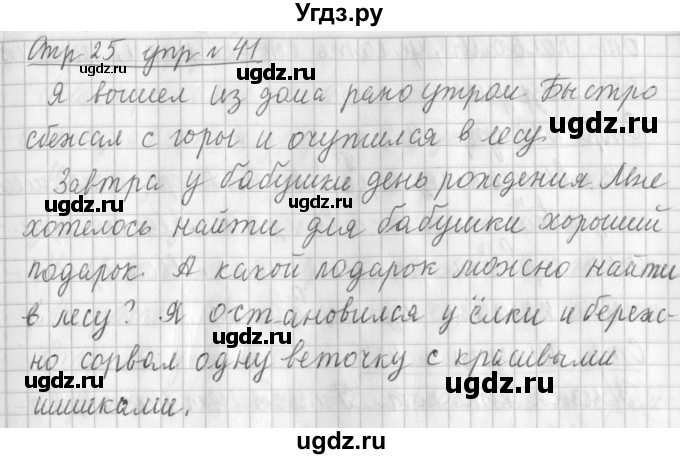 Угдз.ру
Стр 25 упр № 41
ugdz.ru ugdz.ru
Я вышел из дома рано утром. Быстро
ugdz.ru
сбежал с горы и очутился в лесу.
ugdz.ru
Завтра у бабушки день рождения. Мне
ugdz.ru
хотелось найти для бабушки хороший
подарок. А какой подарок можно найти
ugdz.ru
в лесу? Я остановился у ёлки и береж-
ugdz.ru
но сорвал одну веточку с красивыми
шишками.
ugdz.ru
ugdz.ru